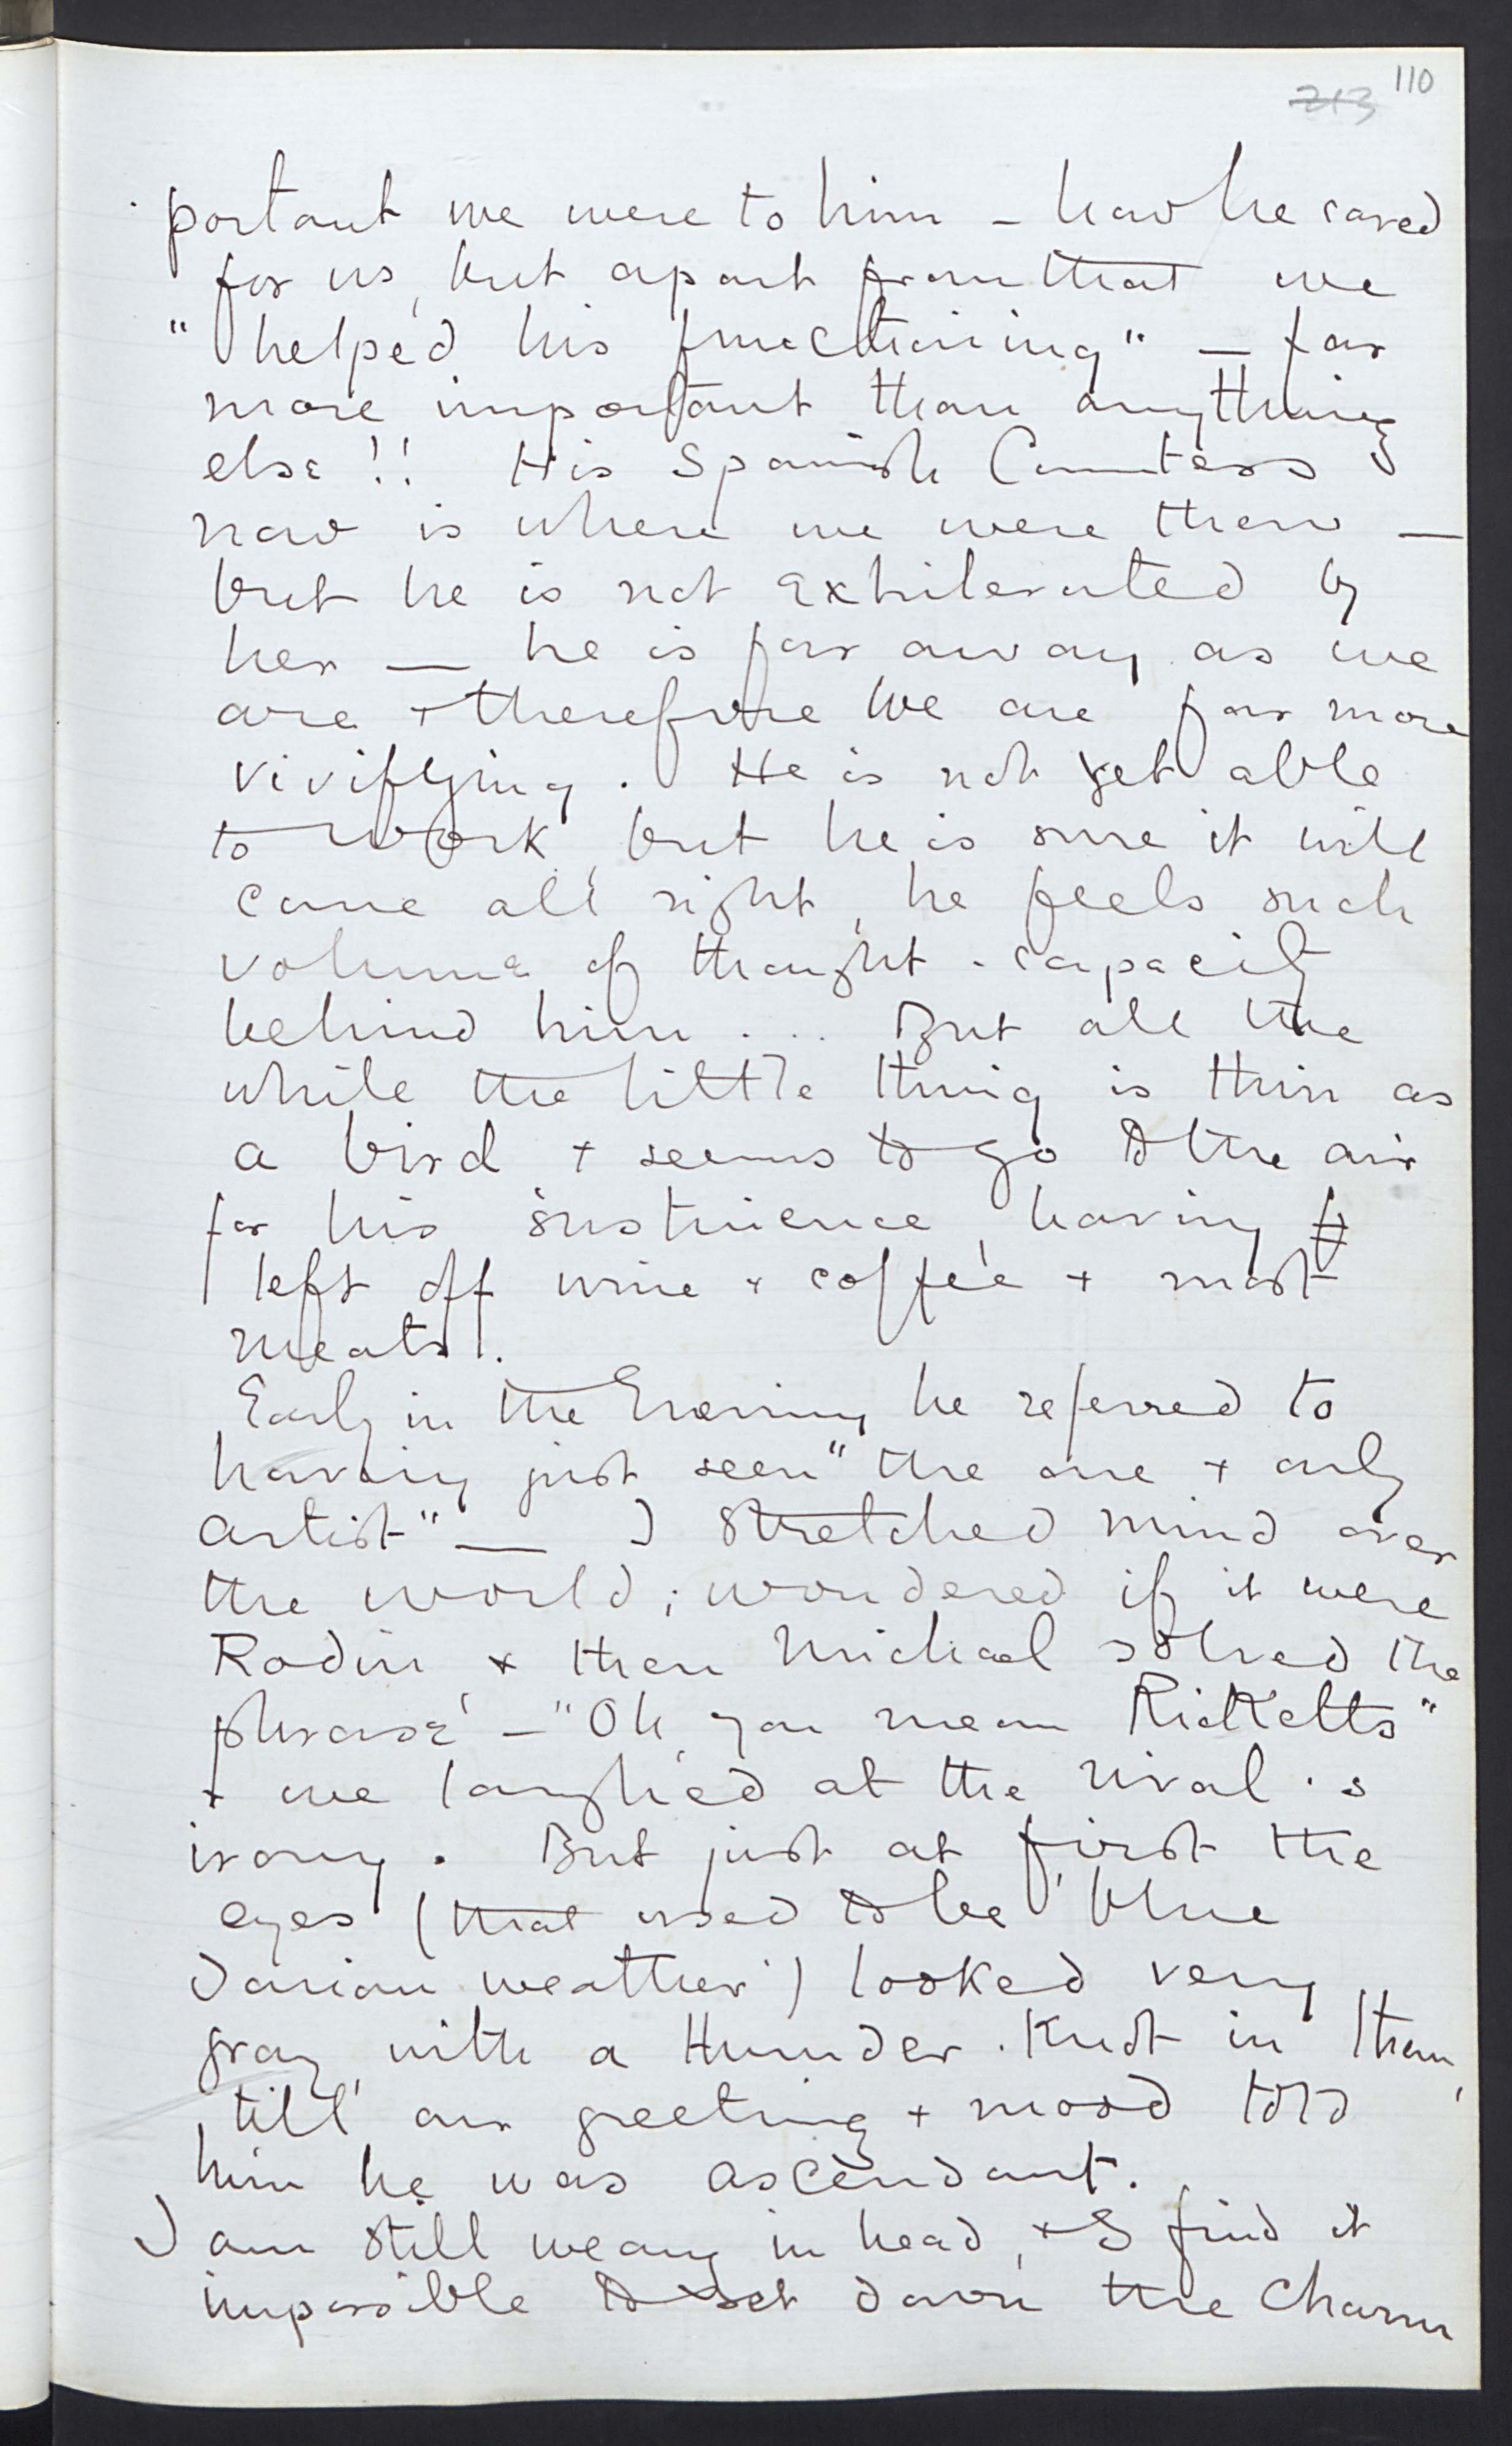 110
213
portant we were to him - how he cared
for us, but apart from that we
"helped his functioning" — far
more important than anything
else!! His Spanish Countess
now is where we were then —
but he is not exhilerated by
her — he is far away as we
are + therefore we are far more
vivifying. He is not yet able
to work, but he is sure it will
come all right, he feels such
volume of thought-capacity
behind him ... But all the
while the little thing is thin as
a bird + seems to go to the air
for his sustinence, having
left off wine + coffee + most
meats.
Early in the Evening he referred to
having just seen "the one + only
artist" — I stretched mind over
the world; wondered if it were
Rodin + then Michael solved the
phrase - "Oh, you mean Ricketts"
+ we laughed at the rival's
irony. But just at first the
eyes (that used to be 'blue
Darian weather') looked very
gray with a thunder-knot in them,
till our greeting + mood told
him he was ascendant.
I am still weary in head, + I find it
impossible to set down the charm